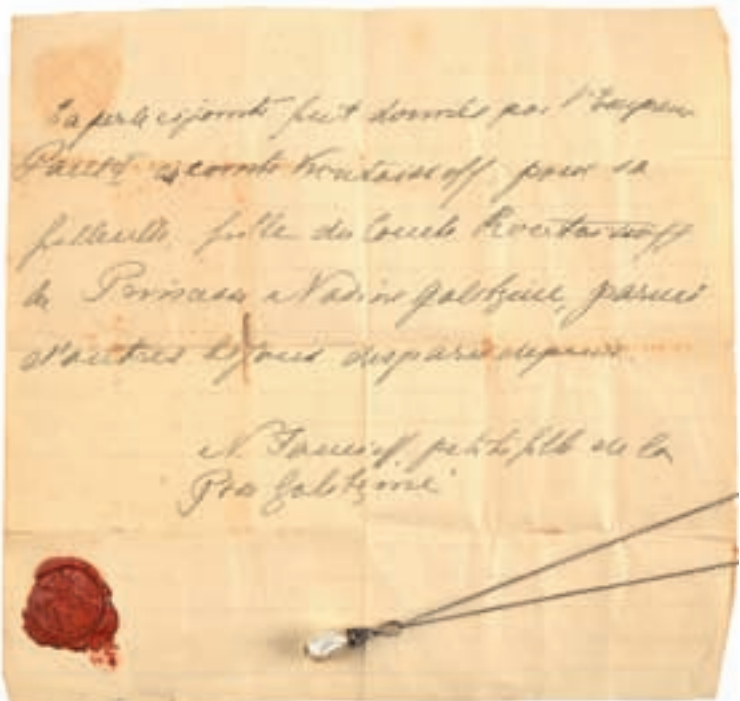 La perle cijointe fut donnée par l'Empereur
Paul I comte Koutaissoff pour sa
filleule fille du Comte Koutaissoff
la Princesse Nadine Galitzine, parmi
d'autres bijoux disparus depuis
N. petite fille de la
Pss Galitzine